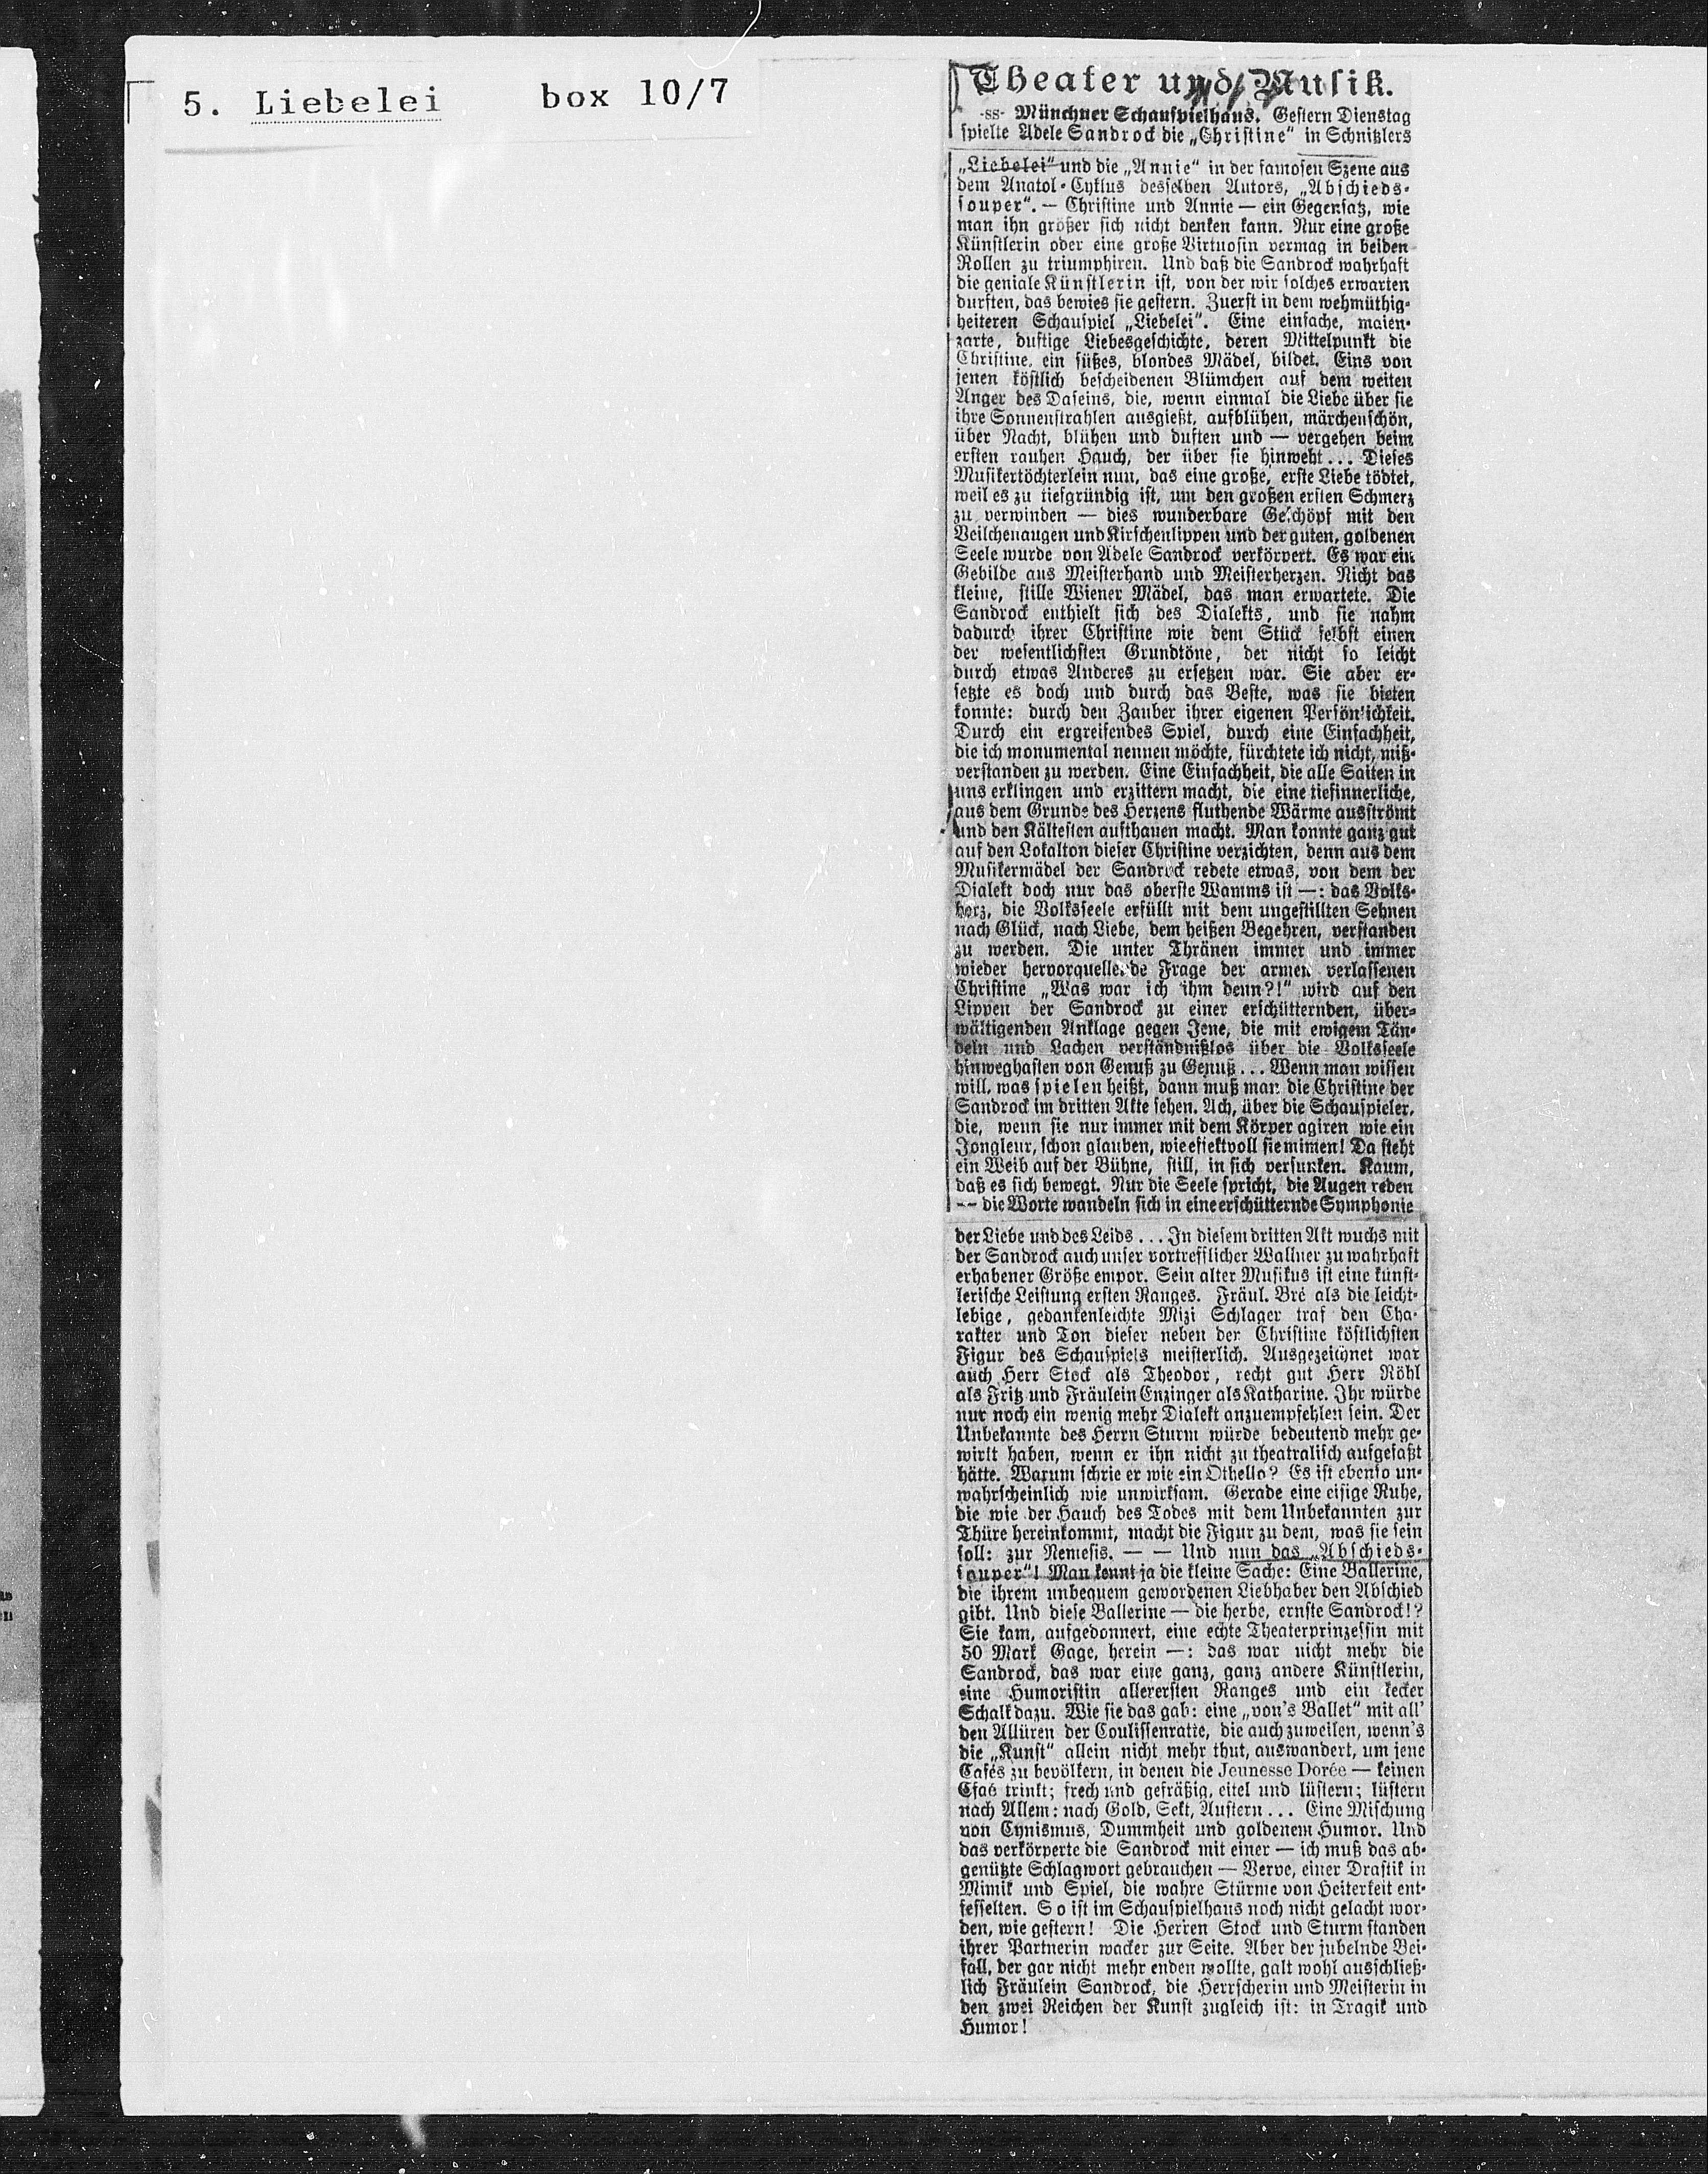 5. Liebelei box 10/7
Theater und Musik.
-ss- Münchner Schauspielhaus. Gestern Dienstag
spielte Adele Sandrock die „Christine“ in Schnitzlers
„Liebelei“ und die „Annie“ in der famosen Szene aus
dem Anatol-Cyklus desselben Autors, „Abschieds-
souper“. — Christine und Annie — ein Gegensatz, wie
man ihn größer sich nicht denken kann. Nur eine große
Künstlerin oder eine große Virtuosin vermag in beiden
Rollen zu triumphiren. Und daß die Sandrock wahrhaft
die geniale Künstlerin ist, von der wir solches erwarten
durften, das bewies sie gestern. Zuerst in dem wehmüthig-
heiteren Schauspiel „Liebelei“. Eine einfache, maien-
zarte, duftige Liebesgeschichte, deren Mittelpunkt die
Christine, ein süßes, blondes Mädel, bildet. Eins von
jenen köstlich bescheidenen Blümchen auf dem weiten
Anger des Daseins, die, wenn einmal die Liebe über sie
ihre Sonnenstrahlen ausgießt, aufblühen, märchenschön,
über Nacht, blühen und duften und — vergehen beim
ersten rauhen Hauch, der über sie hinweht... Dieses
Musikertöchterlein nun, das eine große, erste Liebe tödtet,
weil es zu tiefgründig ist, um den großen ersten Schmerz
zu verwinden — dies wunderbare Geschöpf mit den
Veilchenaugen und Kirschenlippen und der guten, goldenen
Seele wurde von Adele Sandrock verkörpert. Es war ein
Gebilde aus Meisterhand und Meisterherzen. Nicht das
kleine, stille Wiener Mädel, das man erwartete. Die
Sandrock enthielt sich des Dialekts, und sie nahm
dadurch ihrer Christine wie dem Stück selbst einen
der wesentlichsten Grundtöne, der nicht so leicht
durch etwas Anderes zu ersetzen war. Sie aber er-
setzte es doch und durch das Beste, was sie bieten
konnte: durch den Zauber ihrer eigenen Persönlichkeit.
Durch ein ergreifendes Spiel, durch eine Einfachheit,
die ich monumental nennen möchte, fürchtete ich nicht, miß-
verstanden zu werden. Eine Einfachheit, die alle Saiten in
uns erklingen und erzittern macht, die eine tiefinnerliche,
aus dem Grunde des Herzens fluthende Wärme ausströmt
und den Kältesten aufthauen macht. Man konnte ganz gut
auf den Lokalton dieser Christine verzichten, denn aus dem
Musikermädel der Sandrock redete etwas, von dem der
Dialekt doch nur das oberste Wamms ist —: das Volks-
herz, die Volksseele erfüllt mit dem ungestillten Sehnen
nach Glück, nach Liebe, dem heißen Begehren, verstanden
zu werden. Die unter Thränen immer und immer
wieder hervorquellende Frage der armen verlassenen
Christine „Was war ich ihm denn?!“ wird auf den
Lippen der Sandrock zu einer erschütternden, über-
wältigenden Anklage gegen Jene, die mit ewigem Tän-
deln und Lachen verständnißlos über die Volksseele
hinweghasten von Genuß zu Genuß... Wenn man wissen
will, was spielen heißt, dann muß man die Christine der
Sandrock im dritten Akte sehen. Ach, über die Schauspieler,
die, wenn sie nur immer mit dem Körper agiren wie ein
Jongleur, schon glauben, wie effektvoll sie mimen! Da steht
ein Weib auf der Bühne, still, in sich versunken. Kaum,
daß es sich bewegt. Nur die Seele spricht, die Augen reden
-- die Worte wandeln sich in eine erschütternde Symphonie
der Liebe und des Leids... In diesem dritten Akt wuchs mit
der Sandrock auch unser vortrefflicher Wallner zu wahrhaft
erhabener Größe empor. Sein alter Musikus ist eine künst-
lerische Leistung ersten Ranges. Fräul. Bré als die leicht-
lebige, gedankenleichte Mizi Schlager traf den Cha-
rakter und Ton dieser neben der Christine köstlichsten
Figur des Schauspiels meisterlich. Ausgezeichnet war
auch Herr Stock als Theodor, recht gut Herr Röhl
als Fritz und Fräulein Enzinger als Katharine. Ihr würde
nur noch ein wenig mehr Dialekt anzuempfehlen sein. Der
Unbekannte des Herrn Sturm würde bedeutend mehr ge-
wirkt haben, wenn er ihn nicht zu theatralisch aufgefaßt
hätte. Warum schrie er wie ein Othello? Es ist ebenso un-
wahrscheinlich wie unwirksam. Gerade eine eisige Ruhe,
die wie der Hauch des Todes mit dem Unbekannten zur
Thüre hereinkommt, macht die Figur zu dem, was sie sein
soll: zur Nemesis. — — Und nun das „Abschieds-
souper“! Man kennt ja die kleine Sache: Eine Ballerine,
die ihrem unbequem gewordenen Liebhaber den Abschied
gibt. Und diese Ballerine — die herbe, ernste Sandrock!?
Sie kam, aufgedonnert, eine echte Theaterprinzessin mit
50 Mark Gage, herein —: das war nicht mehr die
Sandrock, das war eine ganz, ganz andere Künstlerin,
eine Humoristin allerersten Ranges und ein kecker
Schalk dazu. Wie sie das gab: eine „von's Ballet“ mit all'
den Allüren der Coulissenratte, die auch zuweilen, wenn's
die „Kunst“ allein nicht mehr thut, auswandert, um jene
Cafés zu bevölkern, in denen die Jeunesse Dorée — keinen
Cfaé trinkt; frech und gefräßig, eitel und lüstern; lüstern
nach Allem: nach Gold, Sekt, Austern... Eine Mischung
von Cynismus, Dummheit und goldenem Humor. Und
das verkörperte die Sandrock mit einer — ich muß das ab-
genützte Schlagwort gebrauchen — Verve, einer Drastik in
Mimik und Spiel, die wahre Stürme von Heiterkeit ent-
fesselten. So ist im Schauspielhaus noch nicht gelacht wor-
den, wie gestern! Die Herren Stock und Sturm standen
ihrer Partnerin wacker zur Seite. Aber der jubelnde Bei-
fall, der gar nicht mehr enden wollte, galt wohl ausschließ-
lich Fräulein Sandrock, die Herrscherin und Meisterin in
den zwei Reichen der Kunst zugleich ist: in Tragik und
Humor!